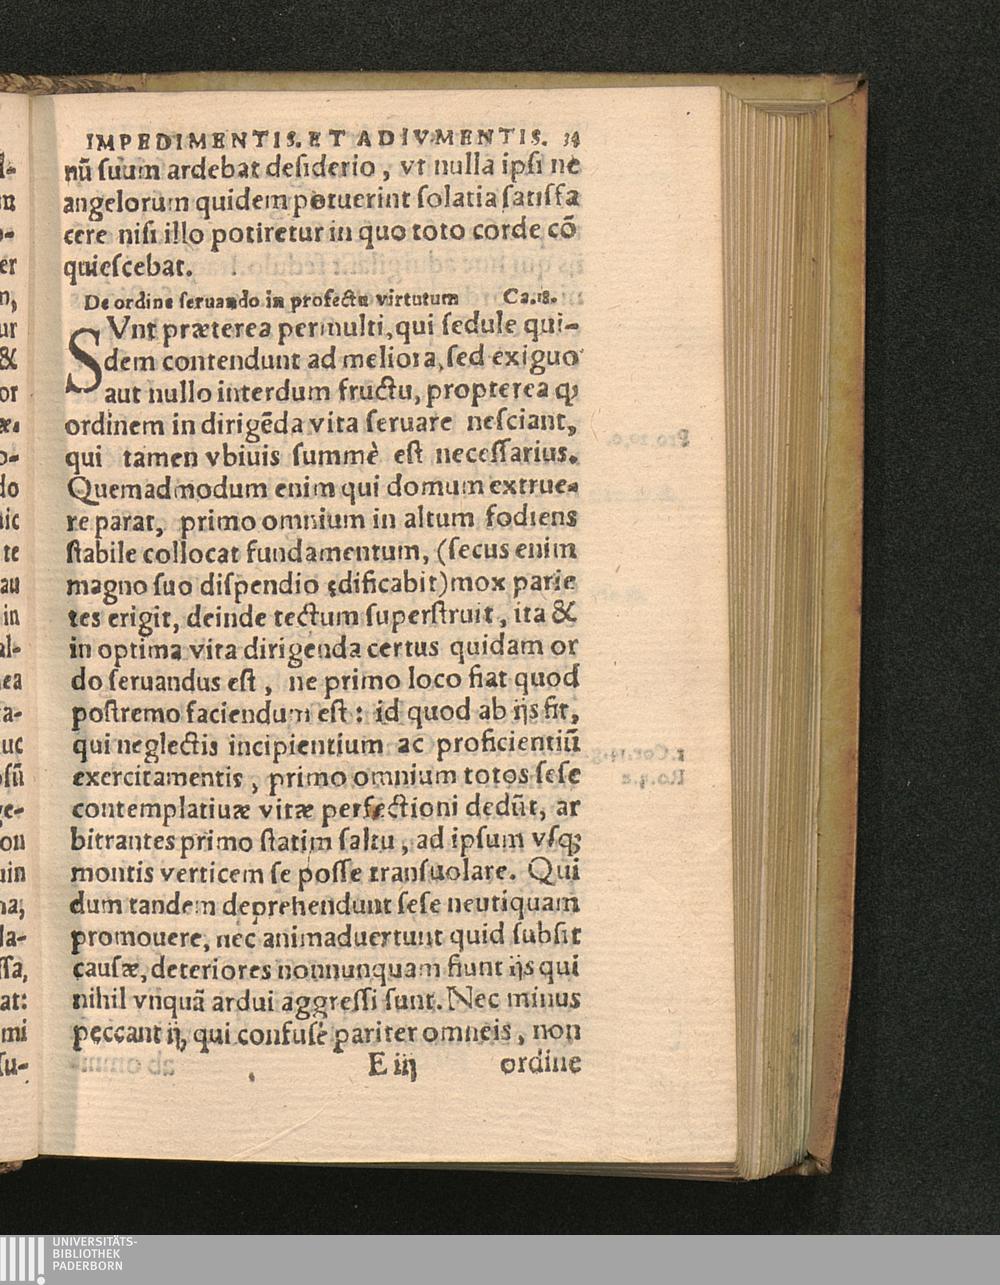 IMPEDIMENTIS. ET ADIVMENTIS. 34
nũ ſuum ardebat deſiderio, vt nulla ipſi ne
angelorum quidem potuerint ſolatia ſatiſfa
cere niſi illo potiretur in quo toto corde cõ
quieſcebat.
De ordine ſeruando in profectu virtutum Ca.18.
SVnt præterea permulti, qui ſedule qui-
dem contendunt ad meliora, ſed exiguo
aut nullo interdum fructu, propterea ꝙ
ordinem in dirigẽda vita ſeruare neſciant,
qui tamen vbiuis ſummè eſt neceſſarius.
Quemadmodum enim qui domum extrue-
re parat, primo omnium in altum fodiens
ſtabile collocat fundamentum, (ſecus enim
magno ſuo diſpendio ędificabit) mox parie
tes erigit, deinde tectum ſuperſtruit, ita &
in optima vita dirigenda certus quidam or
do ſeruandus eſt, ne primo loco fiat quod
poſtremo faciendum eſt: id quod ab ijs fit,
qui neglectis incipientium ac proficientiũ
exercitamentis, primo omnium totos ſeſe
contemplatiuæ vitæ perfectioni dedũt, ar
bitrantes primo ſtatim ſaltu, ad ipſum vſq;
montis verticem ſe poſſe tranſuolare. Qui
dum tandem deprehendunt ſeſe neutiquam
promouere, nec animaduertunt quid ſubſit
cauſæ, deteriores nonnunquam fiunt ijs qui
nihil vnquã ardui aggreſſi ſunt. Nec minus
peccant ij, qui confuſè pariter omneis, non
E iij ordine
UNIVERSITÄTS-
BIBLIOTHEK
PADERBORN